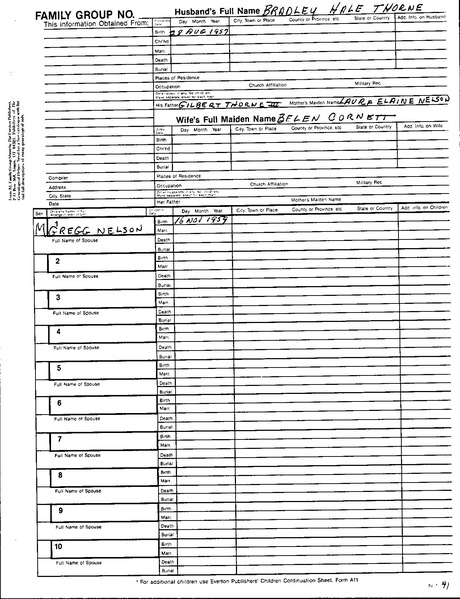 FAMILY GROUP NO.
Husband's Full Name BRADLEY HALE THORNE
This Information Obtained From:
Day Month Year City, Town or Place County or Province, etc. State or Country Add. Info. on Husband
Birth 28 AUG 1957
Chr'nd
Marr.
Death
Burial
Places of Residence
Occupation Church Affiliation Military Rec.
His Father GILBERT THORNE III Mother's Maiden Name LAURA ELAINE NELSON
Wife's Full Maiden Name BELEN CORNETT
Day Month Year City, Town or Place County or Province, etc. State or Country Add. Info. on Wife
Birth
Chr'nd
Death
Burial
Compiler Places of Residence
Address Occupation Church Affiliation Military Rec.
City, State
Date Her Father Mother's Maiden Name
Sex Day Month Year City, Town or Place County or Province, etc. State or Country Add. Info. on Children
M GREGG NELSON Birth 16 NOV 1959
Marr.
Full Name of Spouse Death
Burial
2 Birth
Marr.
Full Name of Spouse Death
Burial
3 Birth
Marr.
Full Name of Spouse Death
Burial
4 Birth
Marr.
Full Name of Spouse Death
Burial
5 Birth
Marr.
Full Name of Spouse Death
Burial
6 Birth
Marr.
Full Name of Spouse Death
Burial
7 Birth
Marr.
Full Name of Spouse Death
Burial
8 Birth
Marr.
Full Name of Spouse Death
Burial
9 Birth
Marr.
Full Name of Spouse Death
Burial
10 Birth
Marr.
Full Name of Spouse Death
Burial
* For additional children use Everton Publishers' Children Continuation Sheet, Form A11